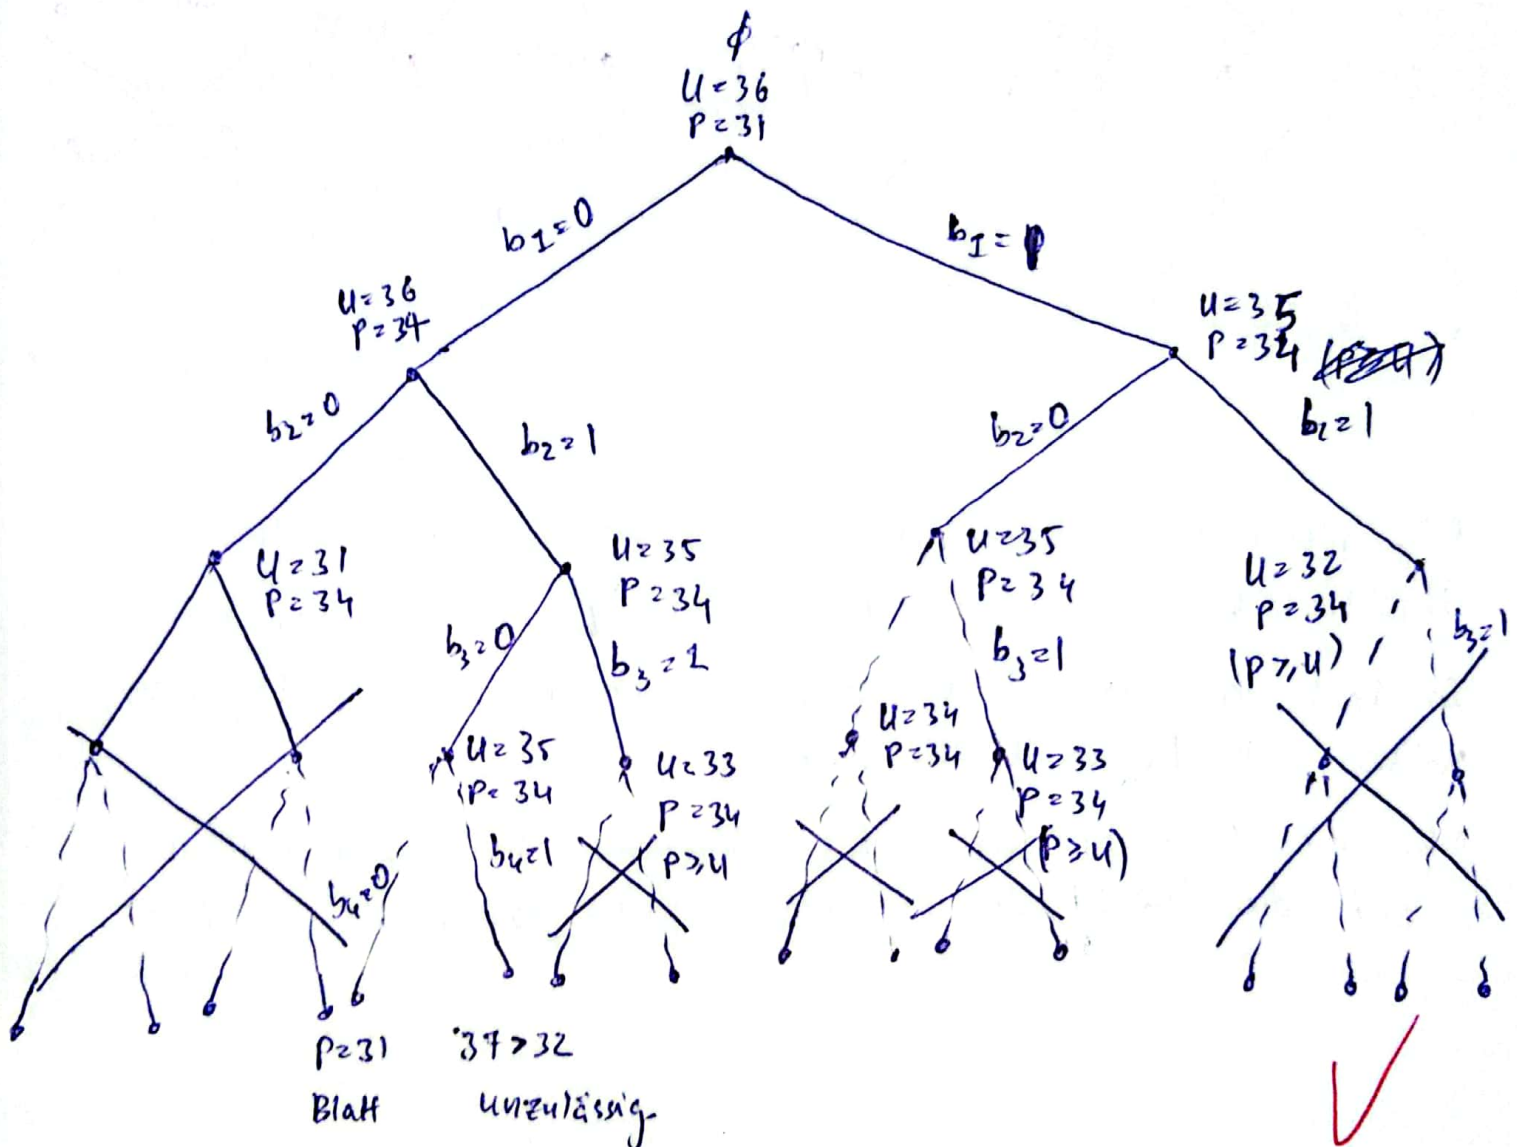 ϕ
U=36
P=31
b1=0
b1=1
U=36
P=34
U=35
P=34
b2=0
b2=1
b2=0
b2=1
U=31
P=34
U=35
P=34
U=35
P=34
U=32
P=34
(P≥U)
b3=0
b3=1
b3=1
b3=1
U=35
P=34
U=33
P=34
P≥U
U=34
P=34
U=33
P=34
(P≥U)
b4=0
b4=1
P=31
Blatt
37>32
unzulässig